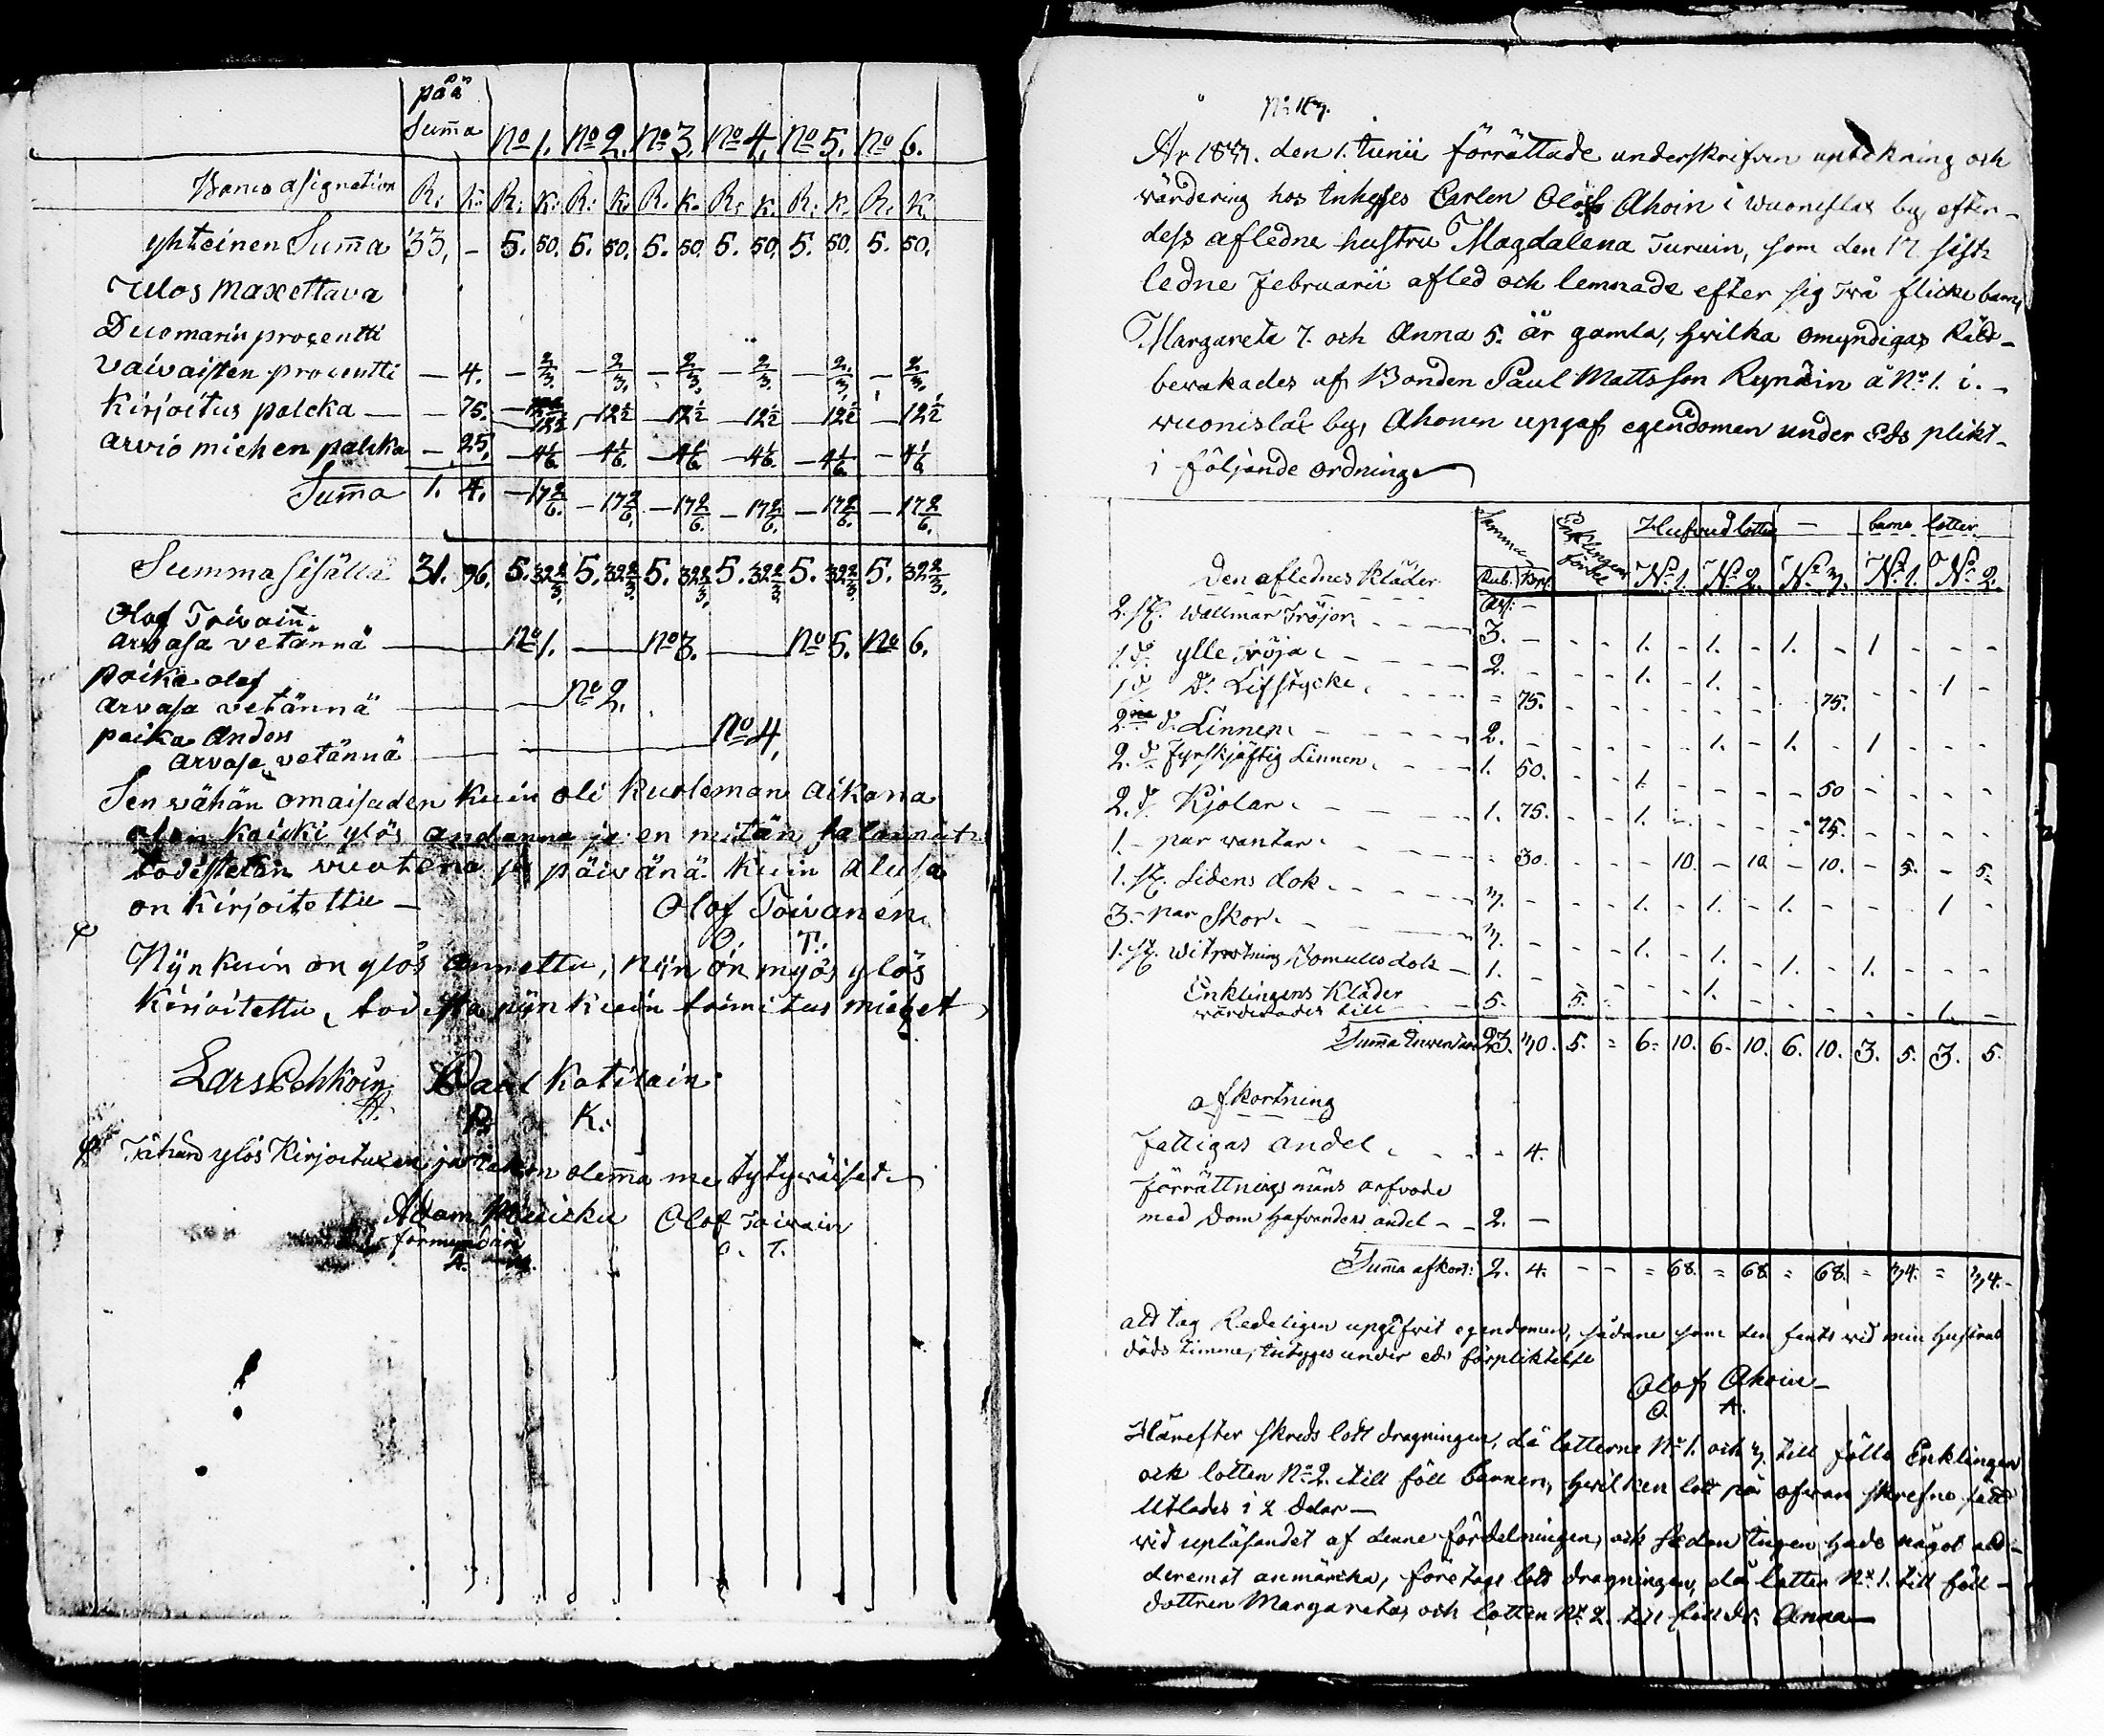 pää
Suma No 1. No 2. No 3. No 4. No 5. No 6.
Banco asignation R: K: R: K: R: K. R. K. R: K. R: K. R. K.
yhteinen Suma 33, – 5. 50. 5. 50. 5. 50 5. 50. 5. 50. 5. 50.
Ulos Maxettava
Duomarin procentti
Vaivaisten procentti — 4. – 2/3. – 2/3. – 2/3. – 2/3. – 2/3. – 2/3.
Kirjoitus palcka — – 75. – 12 1/2 – 12 1/2 – 12 1/2 – 12 1/2 – 12 1/2 – 12 1/2
arvio miehen palcka – 25, – 4 1/6 – 4 1/6. – 4 1/6 – 4 1/6. – 4 1/6. – 4 1/6
Suma 1. 4. – 17 2/6. – 17 2/6. – 17 2/6. – 17 2/6. – 17 2/6. – 17 2/6.
Summa sisällä 31. 96. 5. 32 2/3. 5. 32 2/3. 5. 32 2/3. 5. 32 2/3. 5. 32 2/3. 5. 32 2/3.
Olof Toivain
arvasa vetännä — No 1. — No 3. — No 5. No 6.
poika olof
arvasa vetännä — No 2.
poika Anders
arvasa vetännä — No 4,
Sen vähän omaisuden kuin oli kuoleman aikana
olen kaicki ylös andanna ja en mitän salannut
todistetan vuotena ja päivänä kuin alusa
on Kirjoitettu –
Olof Toivanen
O. T.
Nijn kuin on ylös annettu, nijn on myös ylös
Kirjoitettu, todista nijn kuin toimitus miehet
Lars Pehkoin Paul Katilain
P. K.
Tähän ylös Kirjoituxen ja jakon olema me tytyväiset
Adam Olof Toivain
formyndare O. T.
A.
År den 1. Junii förrättade underskrifven uptekning och
värdering hos Inhyses Carlen Olof Ahoin i Wuonislax by, efter-
dess afledne hustru Magdalena Turuin, som den 17 sist-
ledne Februarii afled och lemnade efter sig två flicke barn,
Margareta 7. och Anna 5. år gamla, hvilka omyndigas Rätt-
bevakades af Bonden Paul Mattsson Rynöin å No 1. i. –
wuonislax by, Ahonen upgaf egendomen under Eds plikt-
i följande ordning
Summa Enklingens fördel Hufvud lotter — barns lotter
Den aflednes Kläder Rub. Kop. No 1. No 2. No 3. No 1. No 2.
2. st. Wallmar Tröjor 3. – – – 1. – 1. – 1. – 1 – – –
1. d. ylle Tröja 2. – – – 1. – 1. – – – – – 1 –
1 d. D. Lifstycke – 75. – – – – – – – 75. – – – –
2. d. Linnen 2. – – – – – 1. – 1. – 1 – – –
2. d. Fyrskäftig Linnen 1. 50. – – 1. – – – – 50 – – – –
2. d. Kjolar 1. 75. – – 1. – – – – 75. – – – –
1. – par vantar – 30. – – – 10. – 10 – 10. – 5. – 5.
1. st. Sidens dok 3. – – – 1. – 1. – 1. – – – 1 –
3. – par Skor 3. – – – 1. – 1. – 1. – 1. – – –
1. st. Bomulls dok — 1. – – – – – 1. – – – – – 1. –
Enklingens Kläder
värderades till 5. 5.
Suma 23. 30. 5. = 6. 10. 6. 10. 6. 10. 3. 5. 3. 5.
afkortning
Fattigas andel – 4.
Förrättnings mäns arfvode
med Dom hafvandens andel – – 2. –
Suma afkort: 2. 4. – – = 68. = 68 = 68. = 34. = 34. –
att iag Redeligen upgifvit egendomen, sådane som den fants vid min hustrus
döds timme, intygges under eds förpliktelse
Olof Ahoin –
O. A.
Härefter skreds lott dragningen, då lotterne No 1. och 3. till föllo Enklingen
och lotten No 2. till föll barnen, hvilken lott på ofvan skrefne sätt
Utlades i 2 delar —
vid upläsandet af denne fördelningen, och sedan ingen hade något
deremot anmärcka, företogs lott dragningen, då lotten No 1. till föll –
dottren Margareta, och lotten No 2. till föll dr. Anna —